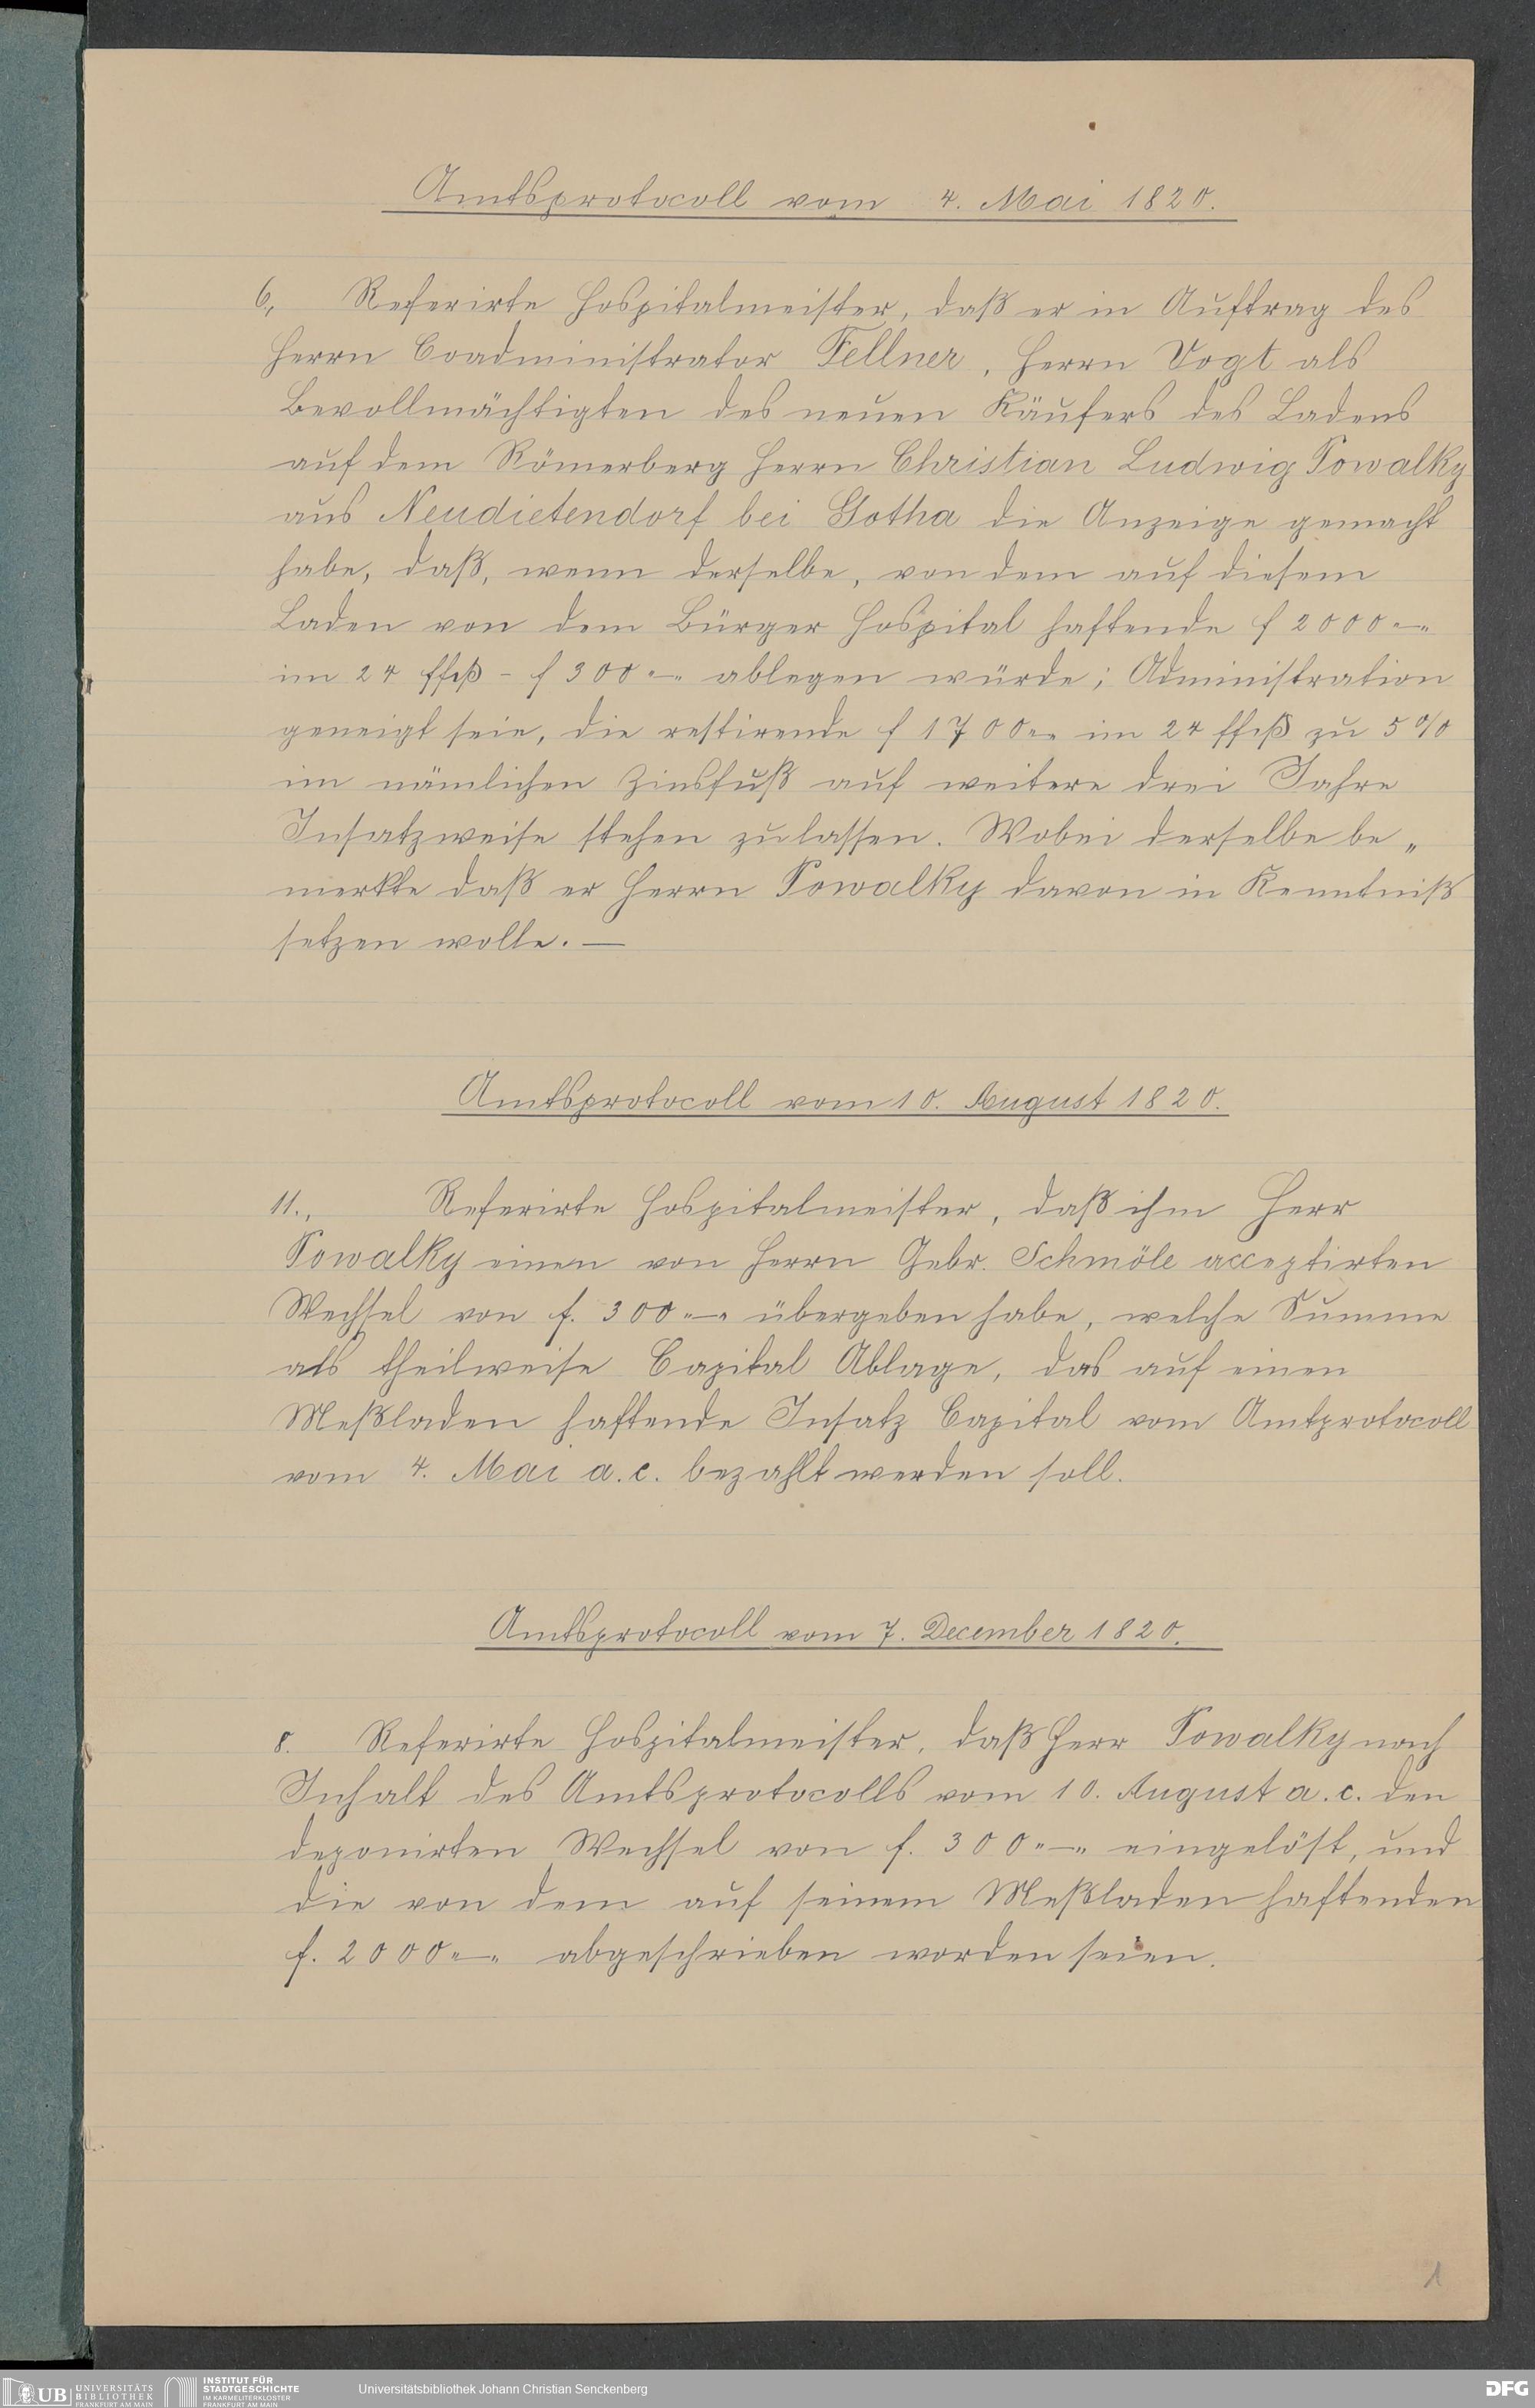 Amtsprotocoll vom 4. Mai 1820.
6, Referirte Hospitalmeister, daß er in Auftrag des
Herrn Coadministrator Fellner, Herrn Vogt als
Bevollmächtigten des neuen Käufers des Ladens
auf dem Römerberg Herrn Christian Ludwig Powalky
aus Neudietendorf bei Gotha die Anzeige gemacht
habe, daß, wenn derselbe, von dem auf diesem
Laden von dem Bürger Hospital haftende f 2000"–"
im 24 ffß - f 300"–" ablegen würde; Administration
geneigt sein, die restirende f 1700"–" im 24 ffß zu 5%
im nämlichen Zinsfuß auf weitere drei Jahre
Insatzweise stehen zulassen. Wobei derselbe be„
merkte daß er Herrn Powalky davon in Kenntniß
setzen wolle. —
Amtsprotocoll vom 10. August 1820.
11., Referirte Hospitalmeister, daß ihm Herr
Powalky einen von Herrn Gebr. Schmöle acceptirten
Wechsel von f. 300"–" übergeben habe, welche Summe
als theilweise Capital Ablage, das auf einen
Meßladen haftende Insatz Capital vom Amtprotocoll
vom 4. Mai a. c. bezahlt werden soll.
Amtsprotocoll vom 7. December 1820.
8. Referirte Hospitalmeister, daß Herr Powalky nach
Inhalt des Amtsprotocolls vom 10. August a. c. den
deponirten Wechsel von f. 300"–" eingelöst, und
die von dem auf seinem Meßladen haftenden
f. 2000"–" abgeschrieben worden seien.
1
UB UNIVERSITÄTS BIBLIOTHEK FRANKFURT AM MAIN
INSTITUT FÜR STADTGESCHICHTE IM KARMELITERKLOSTER FRANKFURT AM MAIN
Universitätsbibliothek Johann Christian Senckenberg
DFG